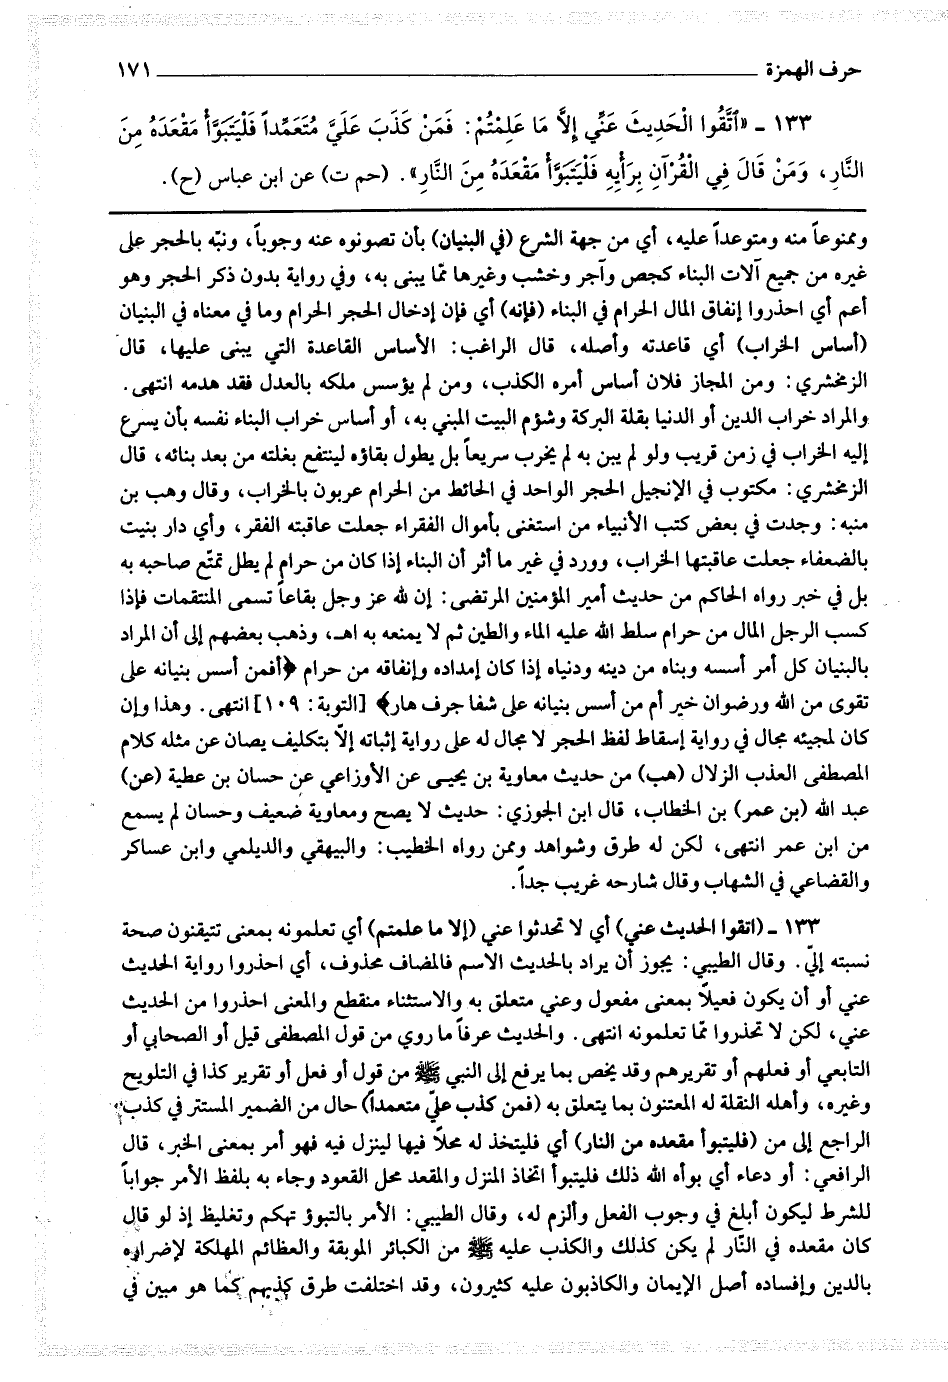 حرف الهمزة ١٧١
١٣٣ ـ «ٱتَّقُوا الْحَدِيثَ عَنِّي إِلاَّ مَا عَلِمْتُمْ: فَمَنْ كَذَبَ عَلَيَّ مُتَعَمِّداً فَلْيَتَبَوَّأْ مَقْعَدَهُ مِنَ
النَّارِ، وَمَنْ قَالَ فِي الْقُرْآنِ بِرَأْيِهِ فَلْيَتَبَوَّأْ مَقْعَدَهُ مِنَ النَّارِ». (حم ت) عن ابن عباس (ح).
وممنوعاً منه ومتوعداً عليه، أي من جهة الشرع (في البنيان) بأن تصونوه عنه وجوباً، ونبّه بالحجر على
غيره من جميع آلات البناء كجص وآجر وخشب وغيرها ممّا يبنى به، وفي رواية بدون ذكر الحجر وهو
أعم أي احذروا إنفاق المال الحرام في البناء (فإنه) أي فإن إدخال الحجر الحرام وما في معناه في البنيان
(أساس الخراب) أي قاعدته وأصله، قال الراغب: الأساس القاعدة التي يبنى عليها، قال
الزمخشري: ومن المجاز فلان أساس أمره الكذب، ومن لم يؤسس ملكه بالعدل فقد هدمه انتهى.
والمراد خراب الدين أو الدنيا بقلة البركة وشؤم البيت المبني به، أو أساس خراب البناء نفسه بأن يسرع
إليه الخراب في زمن قريب ولو لم يبن به لم يخرب سريعاً بل يطول بقاؤه لينتفع بغلته من بعد بنائه، قال
الزمخشري: مكتوب في الإنجيل الحجر الواحد في الحائط من الحرام عربون بالخراب، وقال وهب بن
منبه: وجدت في بعض كتب الأنبياء من استغنى بأموال الفقراء جعلت عاقبته الفقر، وأي دار بنيت
بالضعفاء جعلت عاقبتها الخراب، وورد في غير ما أثر أن البناء إذا كان من حرام لم يطل تمتّع صاحبه به
بل في خبر رواه الحاكم من حديث أمير المؤمنين المرتضى: إن لله عز وجل بقاعاً تسمى المنتقمات فإذا
كسب الرجل المال من حرام سلط الله عليه الماء والطين ثم لا يمنعه به اهـ، وذهب بعضهم إلى أن المراد
بالبنيان كل أمر أسسه وبناه من دينه ودنياه إذا كان إمداده وإنفاقه من حرام ﴿أفمن أسس بنيانه على
تقوى من الله ورضوان خير أم من أسس بنيانه على شفا جرف هار﴾ [التوبة: ١٠٩] انتهى. وهذا وإن
كان لمجيئه مجال في رواية إسقاط لفظ الحجر لا مجال له على رواية إثباته إلاّ بتكليف يصان عن مثله كلام
المصطفى العذب الزلال (هب) من حديث معاوية بن يحيى عن الأوزاعي عن حسان بن عطية (عن)
عبد الله (بن عمر) بن الخطاب، قال ابن الجوزي: حديث لا يصح ومعاوية ضعيف وحسان لم يسمع
من ابن عمر انتهى، لكن له طرق وشواهد وممن رواه الخطيب: والبيهقي والديلمي وابن عساكر
والقضاعي في الشهاب وقال شارحه غريب جداً.
١٣٣ ـ (اتقوا الحديث عني) أي لا تحدثوا عني (إلا ما علمتم) أي تعلمونه بمعنى تتيقنون صحة
نسبته إليّ. وقال الطيبي: يجوز أن يراد بالحديث الاسم فالمضاف محذوف، أي احذروا رواية الحديث
عني أو أن يكون فعيلاً بمعنى مفعول وعني متعلق به والاستثناء منقطع والمعنى احذروا من الحديث
عني، لكن لا تحذروا ممّا تعلمونه انتهى. والحديث عرفاً ما روي من قول المصطفى قيل أو الصحابي أو
التابعي أو فعلهم أو تقريرهم وقد يخص بما يرفع إلى النبي ﷺ من قول أو فعل أو تقرير كذا في التلويح
وغيره، وأهله النقلة له المعتنون بما يتعلق به (فمن كذب عليّ متعمداً) حال من الضمير المستتر في كذب
الراجع إلى من (فليتبوأ مقعده من النار) أي فليتخذ له محلاً فيها لينزل فيه فهو أمر بمعنى الخبر، قال
الرافعي: أو دعاء أي بوأه الله ذلك فليتبوأ اتخاذ المنزل والمقعد محل القعود وجاء به بلفظ الأمر جواباً
للشرط ليكون أبلغ في وجوب الفعل وألزم له، وقال الطيبي: الأمر بالتبوؤ تهكم وتغليظ إذ لو قال
كان مقعده في النّار لم يكن كذلك والكذب عليه ﷺ من الكبائر الموبقة والعظائم المهلكة لإضراره
بالدين وإفساده أصل الإيمان والكاذبون عليه كثيرون، وقد اختلفت طرق كذبهم كما هو مبين في